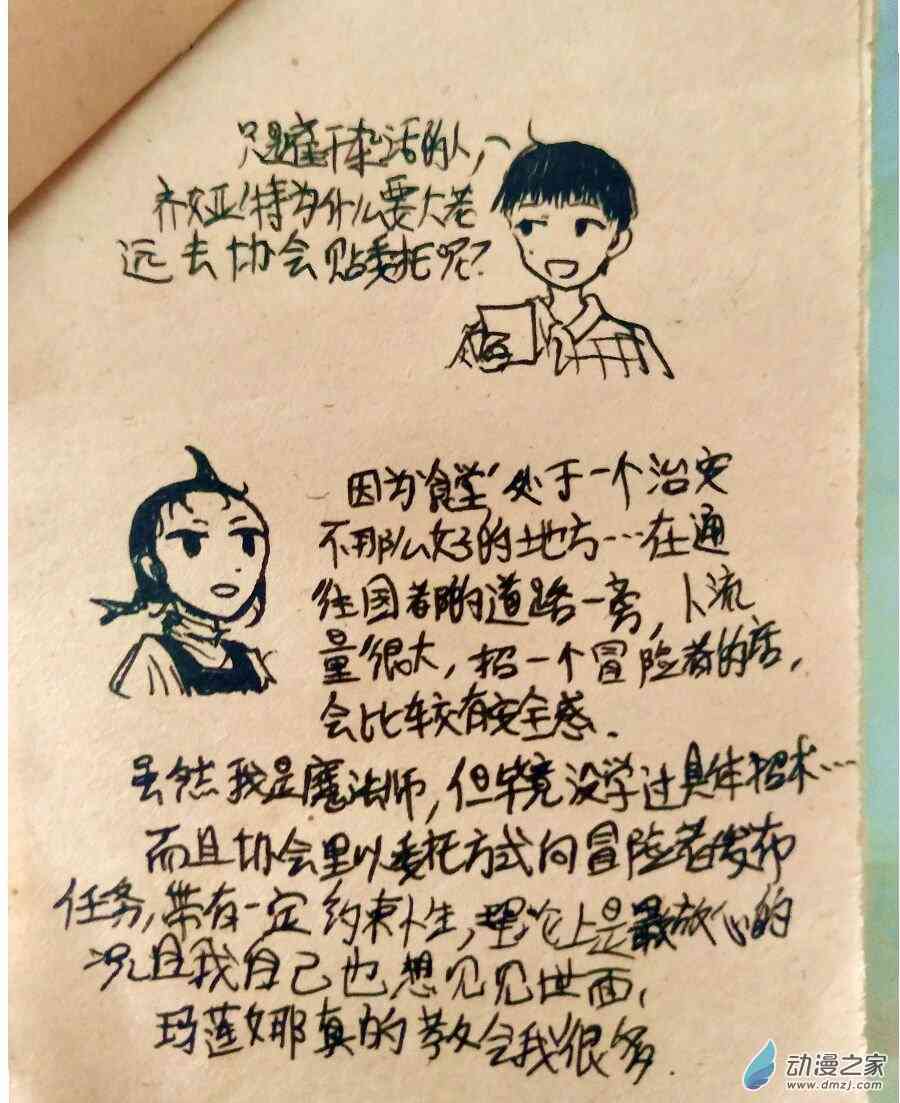 只是雇干杂活的人，
齐娅特为什么要大老
远去协会贴委托呢？
因为食堂处于一个治安
不那么好的地方…在通
往国都的道路一旁，人流
量很大，招一个冒险者的话，
会比较有安全感.
虽然我是魔法师，但毕竟没学过具体招术…
而且协会里以委托方式向冒险者发布
任务，带有一定约束性，理论上是最放心的
况且我自己也想见见世面，
玛莲娜真的教会我很多.
动漫之家
www.dmzj.com